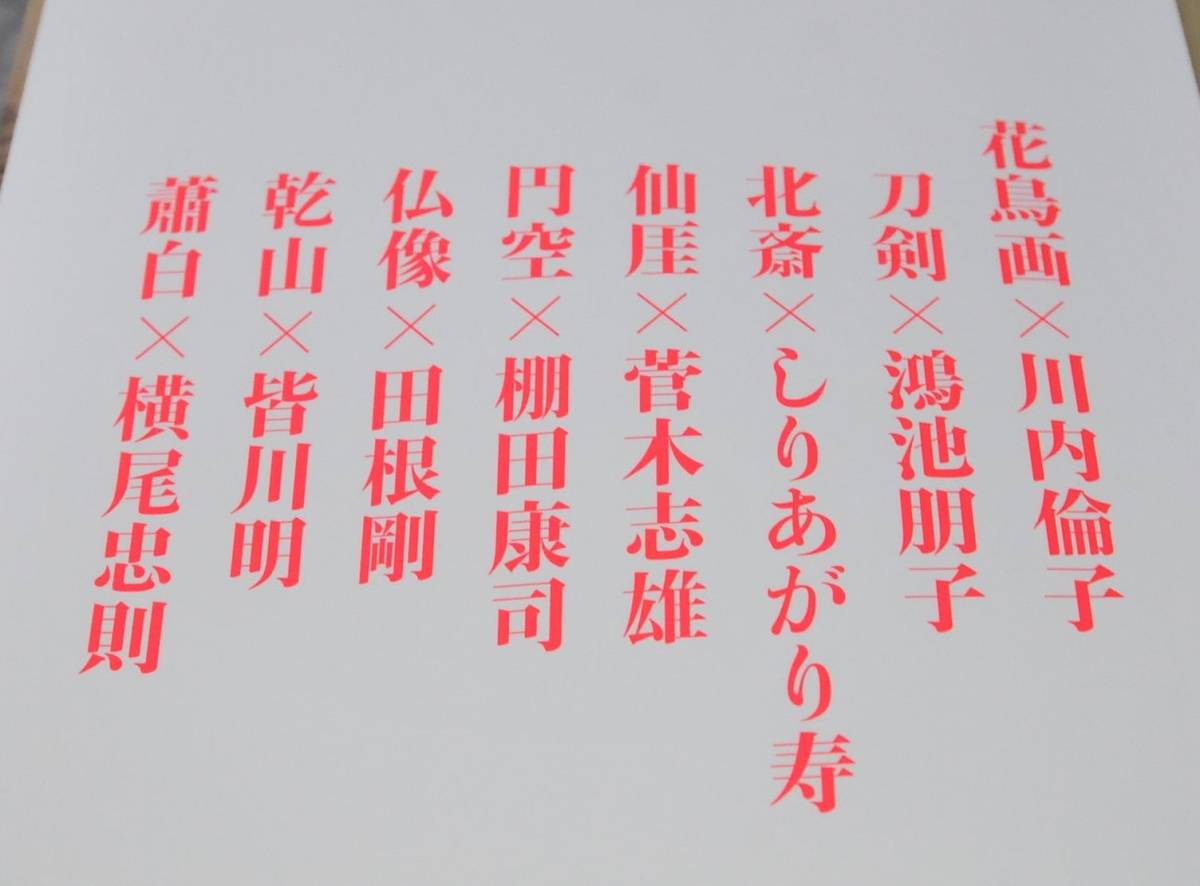 花鳥画×川内倫子
刀剣×鴻池朋子
北斎×しりあがり寿
仙厓×菅木志雄
円空×棚田康司
仏像×田根剛
乾山×皆川明
蕭白×横尾忠則